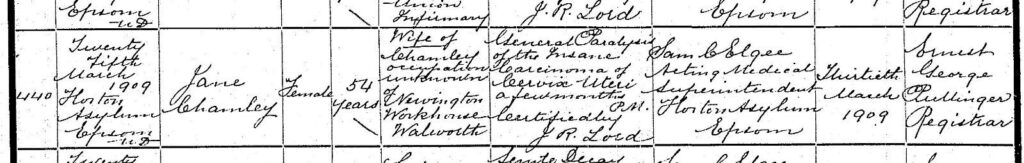 Epsom
U.D
Union
Infirmary
J. R. Lord
Epsom
Registrar
440
Twenty
Fifth
March
1909
Horton
Asylum
Epsom
U.D
Jane
Chamley
Female
54
years
Wife of
Chamley
occupation
unknown
Newington
Workhouse
Walworth
General Paralysis
of the Insane
Carcinoma of
Cervix Uteri
a few months
P.M.
Certified by
J. R. Lord
Sam C Elgee
Acting Medical
Superintendent
Horton Asylum
Epsom
Thirtieth
March
1909
Ernest
George
Pullinger
Registrar
Twenty
Senile Decay